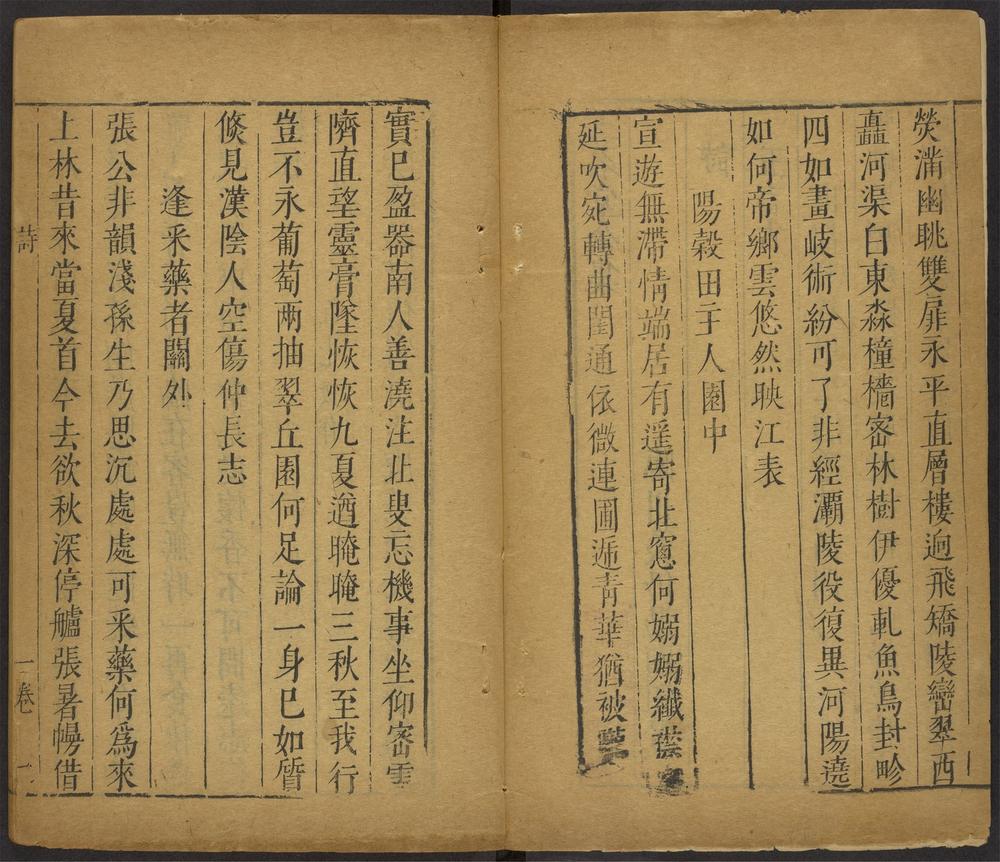 熒滿幽眺雙扉永平直層樓逈飛矯陵巒翠西
矗河渠白東淼橦檣密林樹伊優軋魚鳥封畛
四如畫岐術紛可了非經灞陵役復異河陽遶
如何帝鄉雲悠然映江表
陽榖田主人園中
宣遊無滯情端居有遥寄北窻何嫋嫋纖
延吹宛轉曲閨通依微連圃遞青華猶被
實已盈器南人善澆注北叟忘機事坐仰密雲
隮直望靈膏墜恢恢九夏遒晻晻三秋至我行
豈不永葡萄兩抽翠丘園何足論一身已如贅
倐見漢陰人空傷仲長志
逢采藥者關外
張公非韻淺孫生乃思沉處處可采藥何爲來
上林昔來當夏首今去欲秋深停艫張暑幔借
詩
一卷